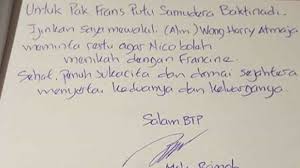 Untuk Pak Frans Putu Samudera Baktinadi.
Ijinkan saya mewakili (Alm) Wong Harry Atmaja
meminta restu agar Nico boleh
menikah dengan Francine.
Sehat, penuh sukacita dan damai sejahtera
menyertai keduanya dan keluarganya.
Salam BTP